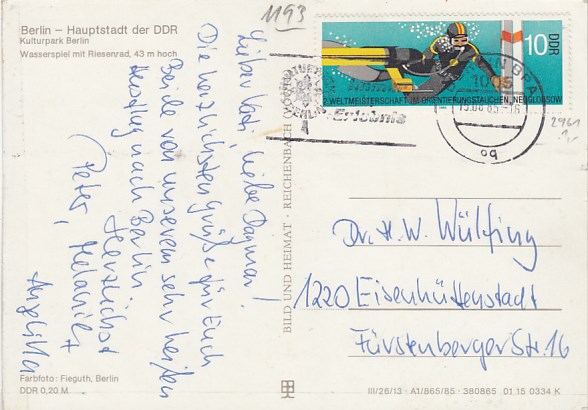 Berlin – Hauptstadt der DDR
Kulturpark Berlin
Wasserspiel mit Riesenrad, 43 m hoch
1193
10 DDR
2. WELTMEISTERSCHAFT IM ORIENTIERUNGSTAUCHEN, NEUGLOBSOW
BERLIN
Erlebnis
BERLIN BPA
1085
13.08.85-16
og
2961
Lieber Vati, liebe Dagmar!
Die herzlichsten Grüße für Euch
Beide von unserem sehr heißen
Ausflug nach Berlin
Herzlichst
Peter, Melanie +
Angelika
BILD UND HEIMAT · REICHENBACH (VOGTL)
Dr. H. W. Wülfing
1220 Eisenhüttenstadt
Fürstenberger Str. 16
Farbfoto: Fieguth, Berlin
DDR 0,20 M
III/26/13 · A1/865/85 · 380865 01 15 0334 K